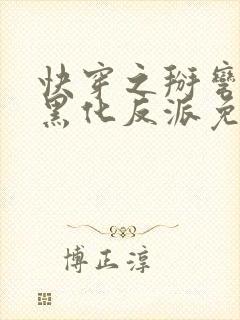 快穿之掰弯
黑化反派免
博正淳